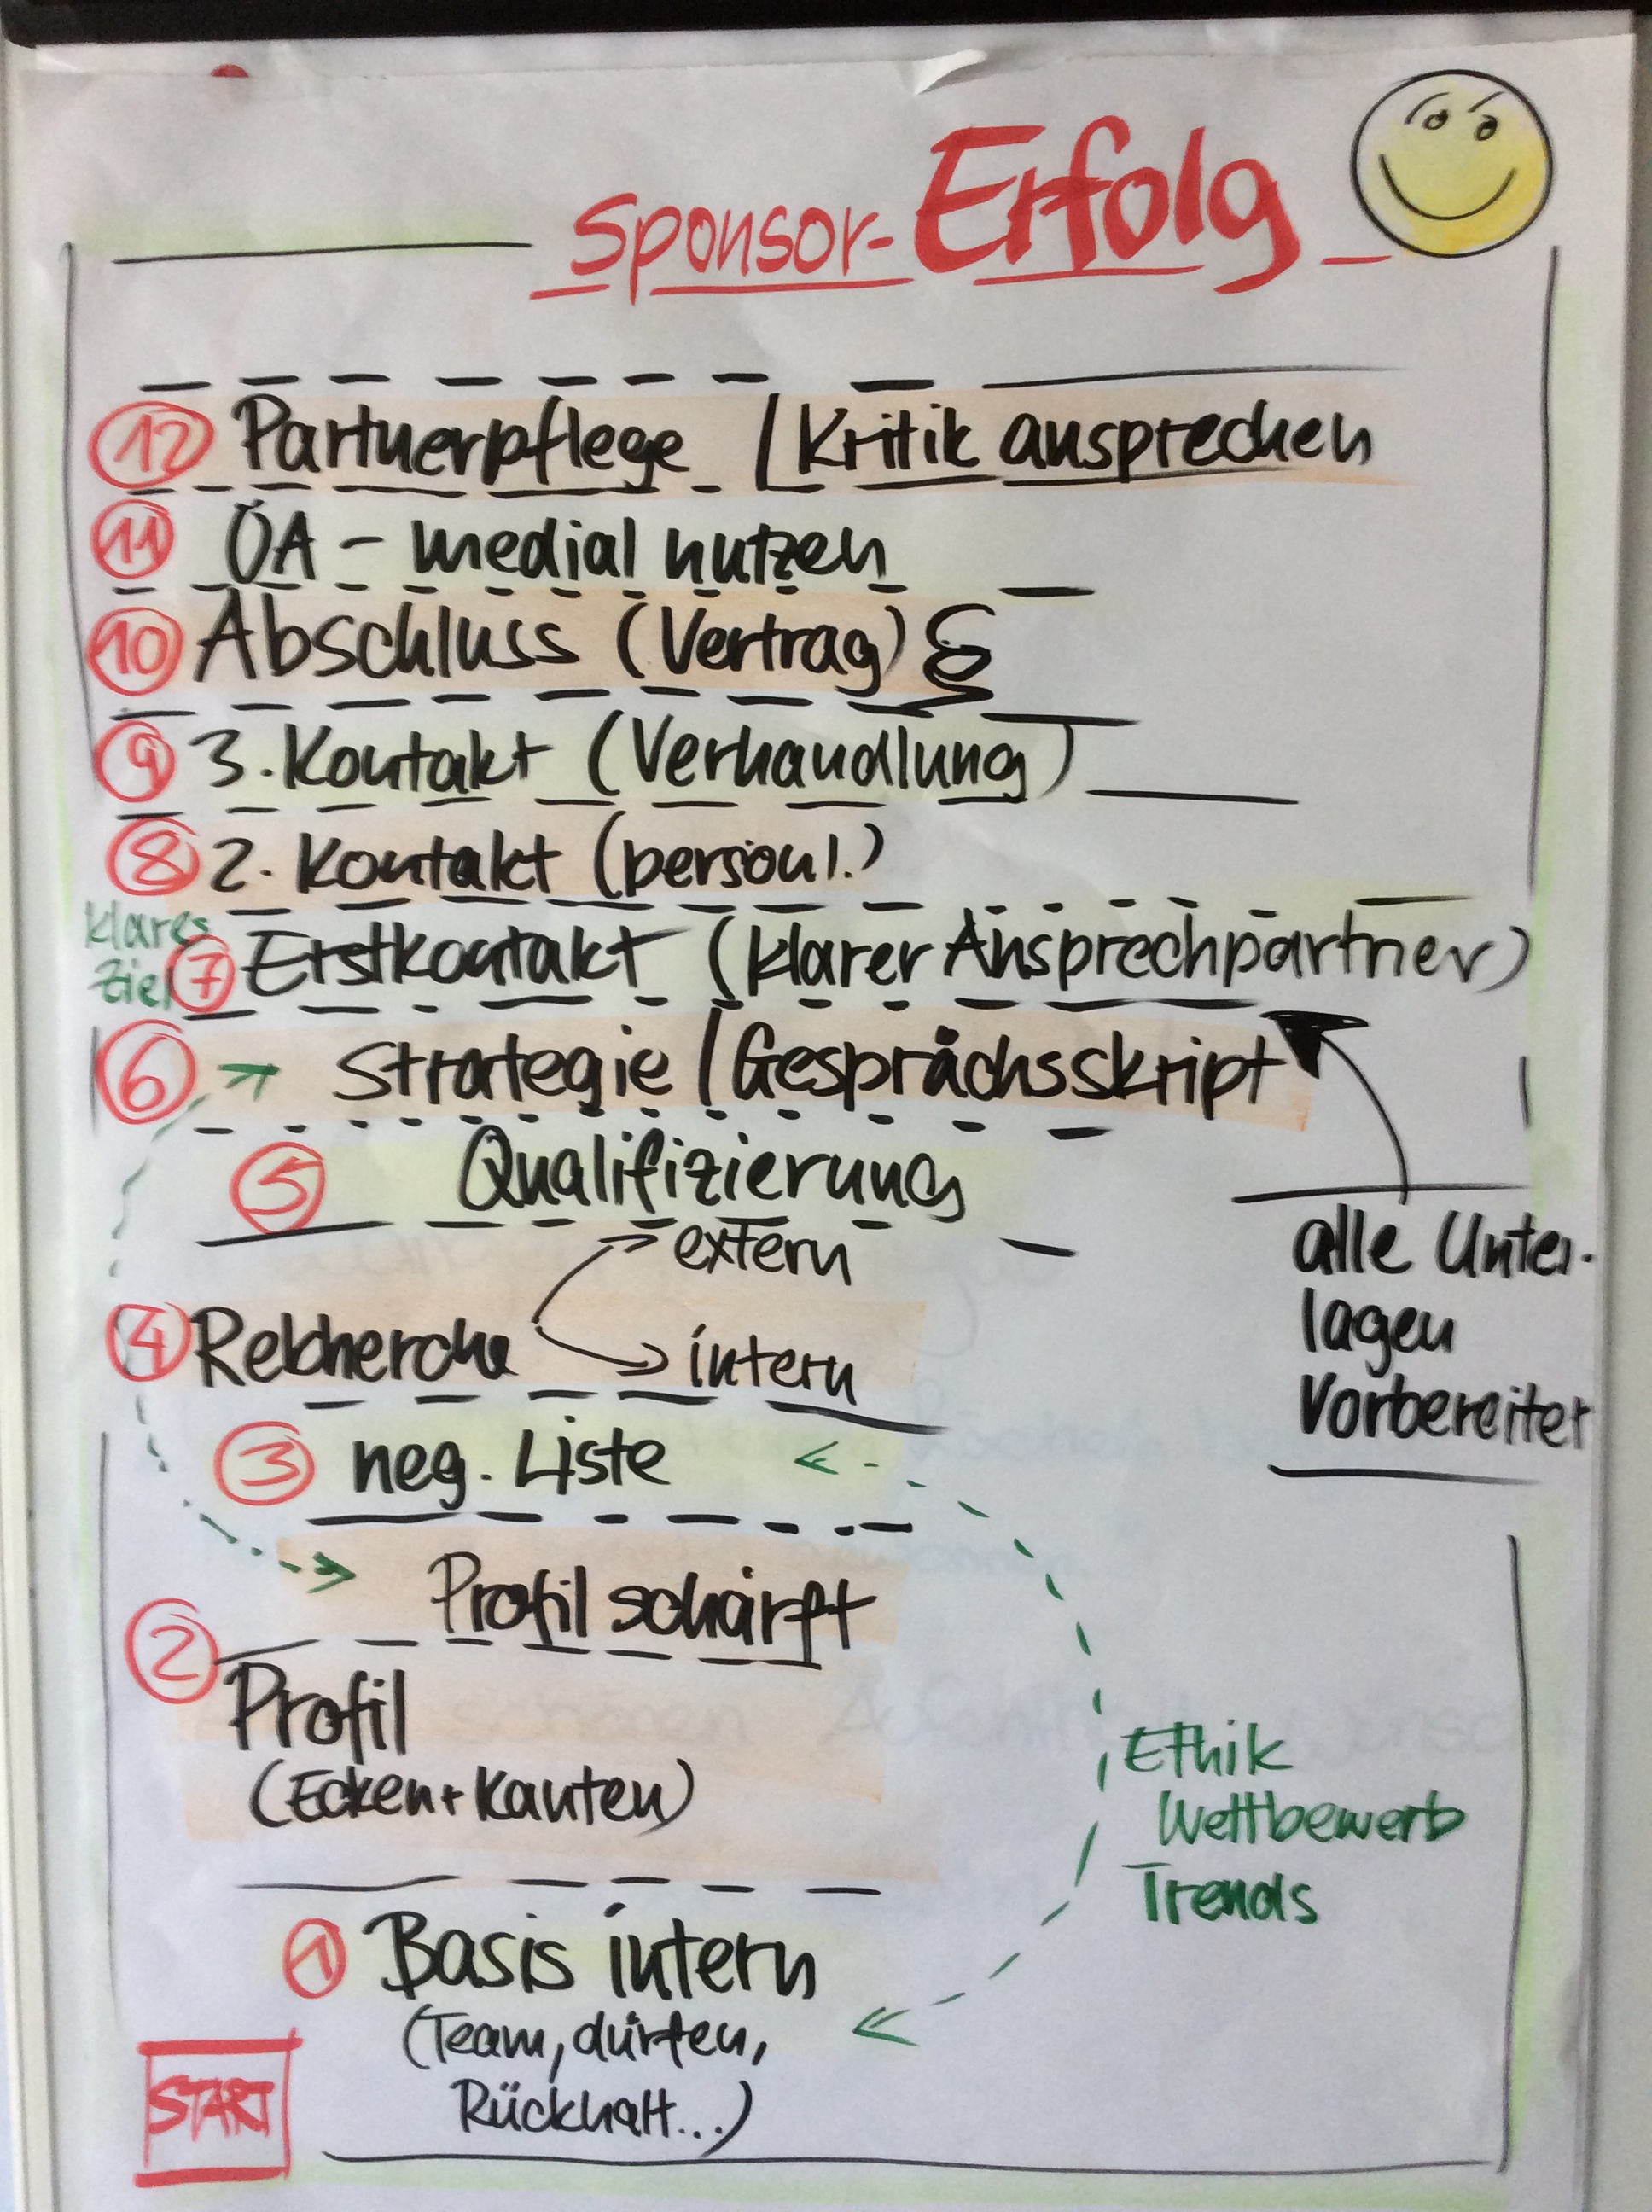 Sponsor-Erfolg
12 Partnerpflege / Kritik ansprechen
11 ÖA - medial nutzen
10 Abschluss (Vertrag) §
9 3. Kontakt (Verhandlung)
8 2. Kontakt (persönl.)
klares
Ziel
7 Erstkontakt (klarer Ansprechpartner)
6 → Strategie / Gesprächsskript
5 Qualifizierung
extern
4 Recherche
intern
alle Unter-
lagen
Vorbereitet
3 neg. Liste
Profil schärft
2
Profil
(Ecken + Kanten)
Ethik
Wettbewerb
Trends
1 Basis intern
(Team, dürfen,
Rückhalt...)
START